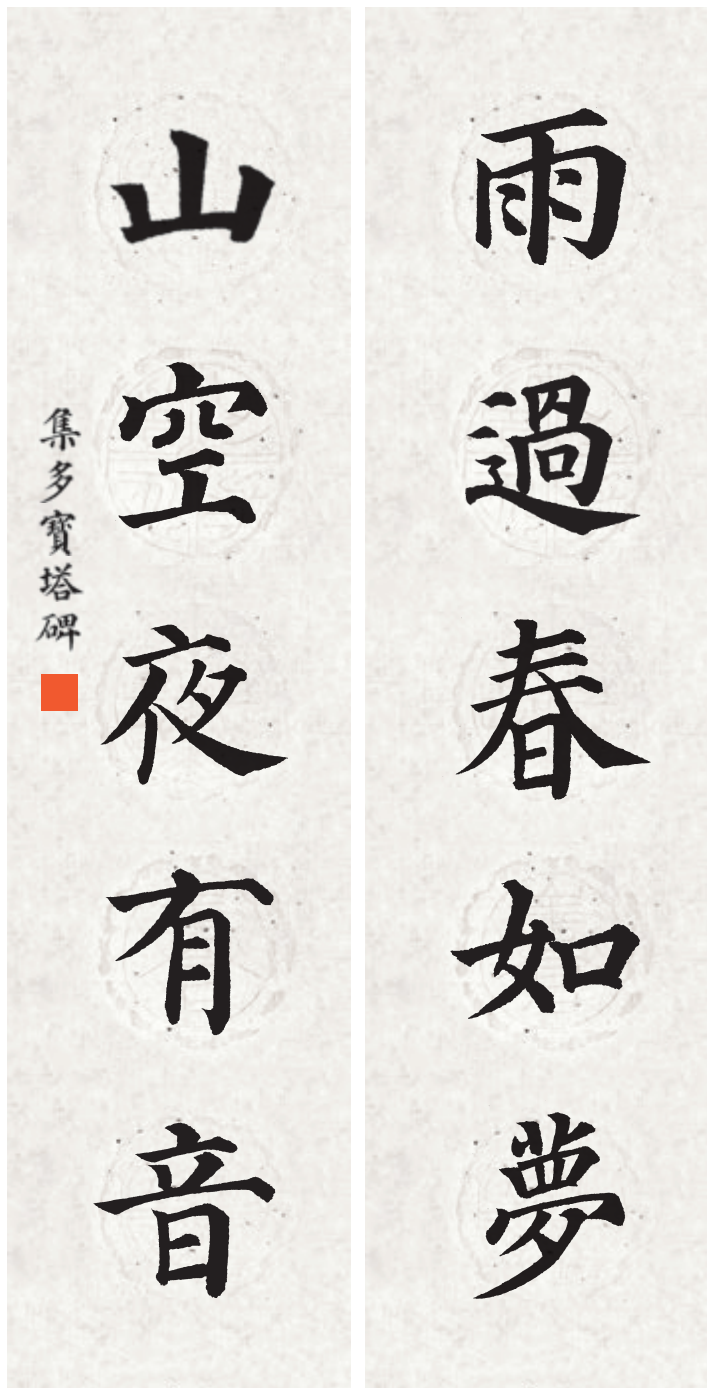 雨過春如夢
山空夜有音
集多寶塔碑